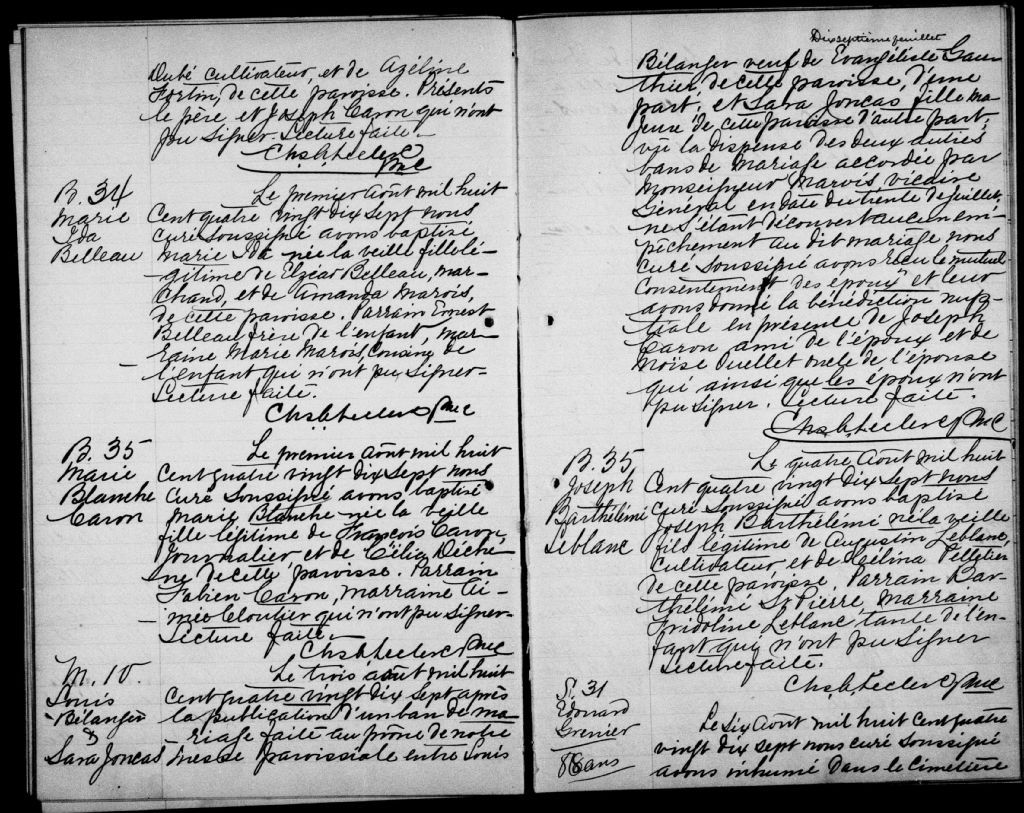 Dubé cultivateur, et de Azéline
Fortin, de cette paroisse. Présents
le père et Joseph Caron qui n'ont
pu signer. Lecture faite –
Chs. A. Leclerc Ptre
B. 34
Marie
Ida
Belleau
Le premier Août mil huit
Cent quatre vingt dix sept nous
curé soussigné avons baptisé
Marie Ida née la veille fille lé-
gitime de Elzéar Belleau, mar-
chand, et de Amanda Marois,
de cette paroisse. Parrain Ernest
Belleau frère de l'enfant, mar-
raine Marie Marois, Cousine de
l'enfant qui n'ont pu signer –
Lecture faite.
Chs. A. Leclerc Ptre
B. 35
Marie
Blanche
Caron
Le premier Août mil huit
Cent quatre vingt dix sept nous
Curé soussigné avons baptisé
Marie Blanche née la veille
fille légitime de François Caron,
Journalier, et de Célia Deche-
ne, de cette paroisse. Parrain
Fabien Caron, Marraine Ai-
mée Cloutier qui n'ont pu signer –
Lecture faite –
Chs A Leclerc Ptre
M. 10.
Louis
Bélanger
&
Sara Joncas
Le trois août mil huit
Cent quatre vingt dix sept après
la publication d'un ban de ma
riage faite au prône de notre
Messe paroissiale entre Louis
Dix septième feuillet
Bélanger veuf de Evangéliste Gau
thier, de cette paroisse, d'une
part, et Sara Joncas fille ma
jeure de cette paroisse d'autre part,
vu la dispense des deux autres
bans de Mariage accordée par
Monseigneur Marois vicaire
Général en date du trente de juillet,
ne s'étant découvert aucun em-
pêchement au dit mariage nous
curé soussigné avons reçu le mutuel
Consentement des époux et leur
avons donné la bénédiction nup-
tiale en présence de Joseph
Caron ami de l'époux et de
Moïse Ouellet oncle de l'épouse
qui ainsi que les époux n'ont
pu signer. Lecture faite.
Chs. A. Leclerc Ptre
B. 35
Joseph
Barthélémi
Leblanc
Le quatre Août mil huit
Cent quatre vingt dix sept nous
curé soussigné avons baptisé
Joseph Barthélémi né la veille
fils légitime de Augustin Leblanc,
Cultivateur, et de Célina Pelletier
de cette paroisse, Parrain Bar-
thélémi St Pierre, Marraine
Fridoline Leblanc tante de l'en-
fant qui n'ont pu signer
Lecture faite.
Chs. A. Leclerc Ptre
S. 31
Edouard
Grenier
ans
Le six Août mil huit cent quatre
vingt dix sept nous curé soussigné
avons inhumé dans le cimetière